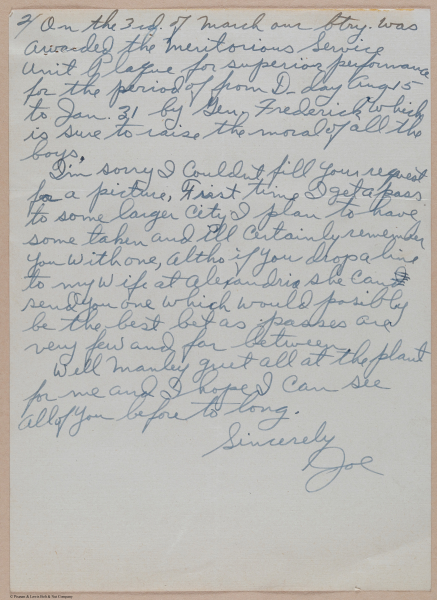 2/ On the 3rd. of March our Btry. was
awarded the Meritorious Service
Unit Plaque for superior performance
for the period of from D-day Aug 15
to Jan. 31 by Gen. Frederick which
is sure to raise the moral of all the
boys.
I'm sorry I couldnt fill your request
for a picture, First time I get a pass
to some larger city, I plan to have
some taken and I'll certainly remember
you with one, altho if you drop a line
to my wife at Alexandria she can
send you one which would posibly
be the best bet as passes are
very few and far between.
Well Manley greet all at the plant
for me and I hope I can see
all of you before to long.
Sincerely
Joe
© Forum & Lewis Bolt & Nut Company